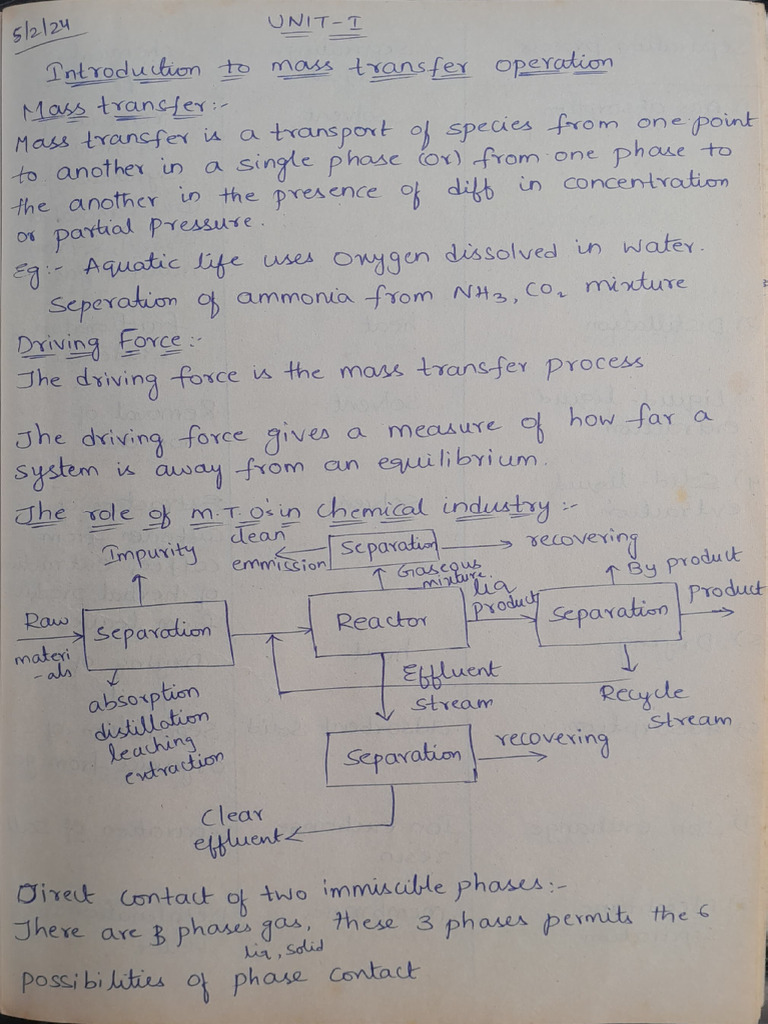 5/2/24
UNIT-I
Introduction to mass transfer operation
Mass transfer:-
Mass transfer is a transport of species from one point
to another in a single phase (or) from one phase to
the another in the presence of diff in concentration
or partial pressure.
Eg:- Aquatic life uses oxygen dissolved in water.
Seperation of ammonia from NH3, CO2 mixture
Driving Force:-
The driving force is the mass transfer process
The driving force gives a measure of how far a
system is away from an equilibrium.
The role of m.T.O's in chemical industry:-
Impurity
clean
emmission
Separation
recovering
Gaseous
mixture
By product
Raw
materi
-als
Separation
Reactor
liq
product
Separation
product
absorption
distillation
leaching
extraction
Effluent
stream
Recycle
Stream
Separation
recovering
Clear
effluent
Direct contact of two immiscible phases:-
There are 3 phases gas, these 3 phases permits the 6
liq, solid
possibilities of phase contact